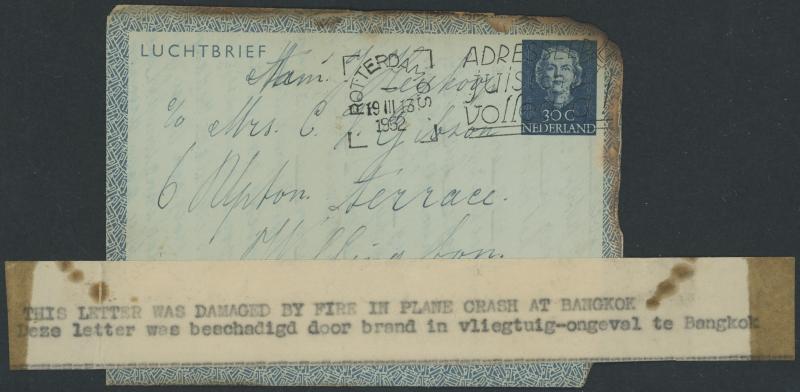 LUCHTBRIEF
ROTTERDAM
19 III 13
1952
ADRES
juis
voll
30 C
NEDERLAND
c/o Mrs. C. Gibson
6 Upton Terrace.
Wellington.
THIS LETTER WAS DAMAGED BY FIRE IN PLANE CRASH AT BANGKOK
Deze letter was beschadigd door brand in vliegtuig-ongeval te Bangkok